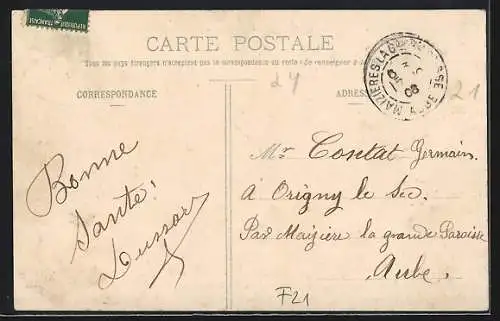 CARTE POSTALE
Tous les pays étrangers n'acceptent pas la correspondance au recto (Se renseigner à la
CORRESPONDANCE
ADRES
24
21
MAIZIERES LA GDE PAROISSE
AUBE
06
Bonne
Santé!
Mr Contat Germain
à Origny le Sec.
Par Maizière la grande Paroisse
Aube
F21